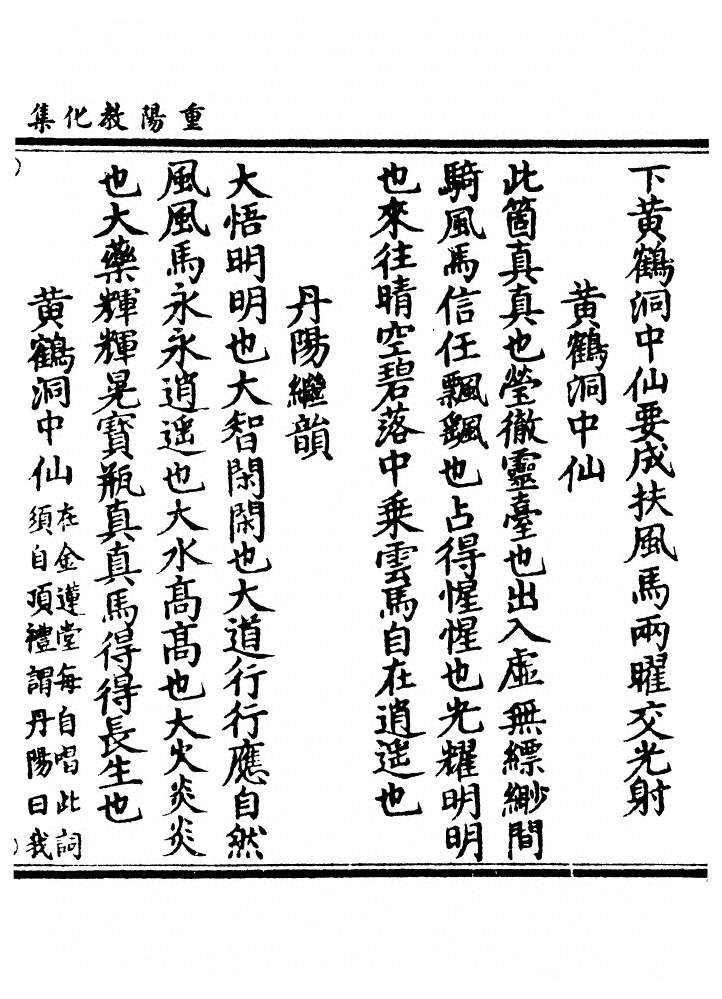 重陽教化集
下黃鶴洞中仙要成扶風馬兩曜交光射
黃鶴洞中仙
此箇真真也瑩徹靈臺也出入虛無縹緲間
騎風馬信任飄飄也占得惺惺也光耀明明
也來往晴空碧落中乘雲馬自在逍遙也
丹陽繼韻
大悟明明也大智閑閑也大道行行應自然
風風馬永永逍遥也大水髙髙也大火炎炎
也大藥輝輝晃寶瓶真真馬得得長生也
黃鶴洞中仙
在金蓮堂每自唱此詞
須自頂禮謂丹陽曰我